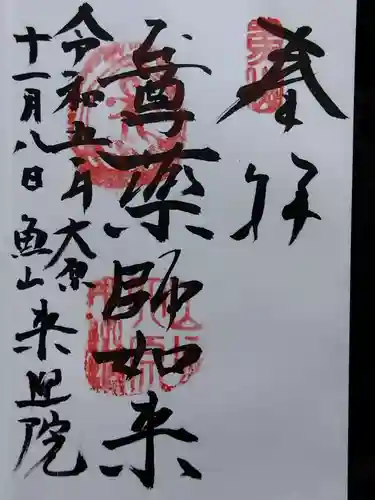 奉拝
尊薬師如来
令和五年大原
十一月八日
魚山来迎院